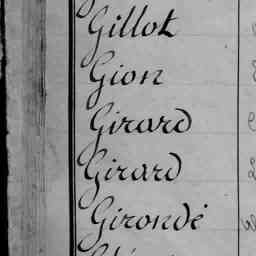 Gillot
Gion
Girard
Girard
Girondé